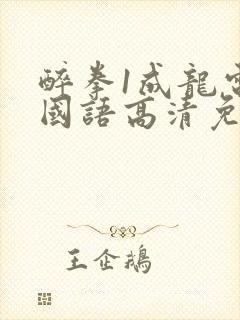 醉拳1成龍電
國語高清免
王企鵝